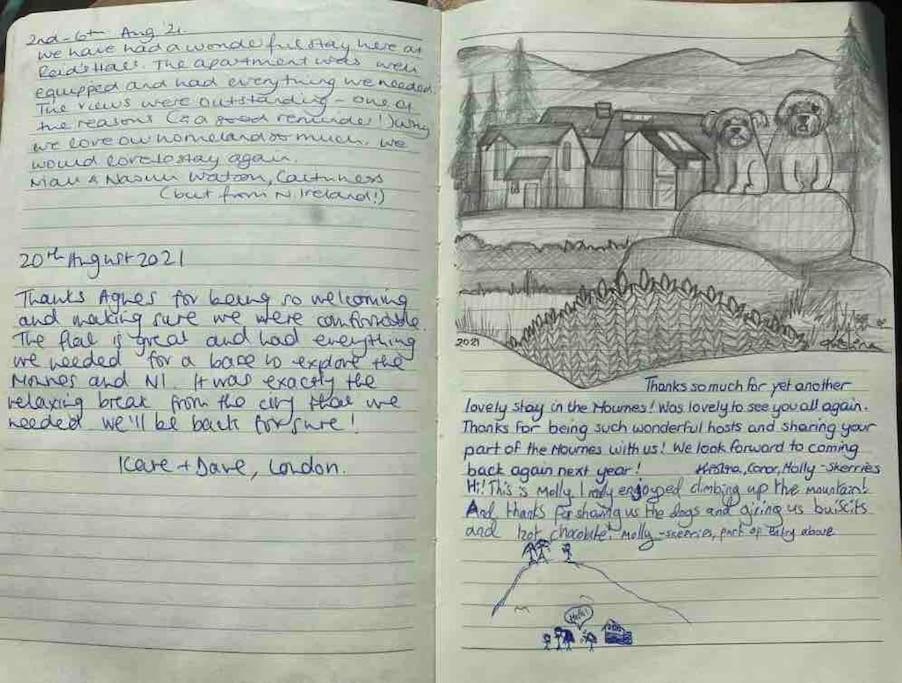 2nd-6th Aug '21.
We have had a wonderful stay here at
Reid's Hall. The apartment was well
equipped and had everything we needed.
The views were outstanding - one of
the reasons (& a good reminder!) why
we love our homeland so much. We
would love to stay again.
Watson, Caithness
(but from N. Ireland!)
20th August 2021
Thanks Agnes for being so welcoming
and making sure we were comfortable.
The flat is great and had everything
we needed for a base to explore the
Mournes and NI. It was exactly the
relaxing break from the city that we
needed we'll be back for sure!
Kare + Dave, London.
2021
Thanks so much for yet another
lovely stay in the Mournes! Was lovely to see you all again.
Thanks for being such wonderful hosts and sharing your
part of the Mournes with us! We look forward to coming
back again next year! Conor, Molly - Skerries
Hi! This is Molly. I really enjoyed climbing up the mountain!
And thanks for showing us the dogs and giving us buiscits
and hot chocolate! Molly - skerries, part of entry above
Hello!